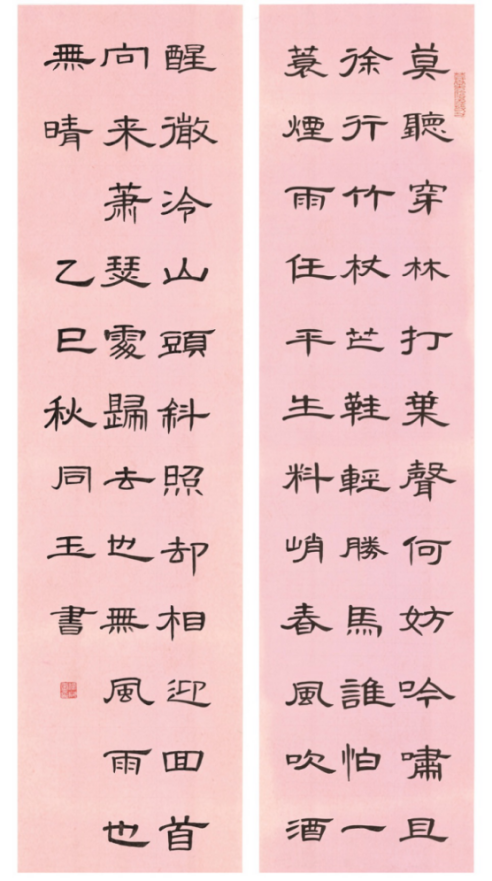 莫聽穿林打葉聲何妨吟嘯且
徐行竹杖芒鞋輕勝馬誰怕一
蓑煙雨任平生料峭春風吹酒
醒微冷山頭斜照却相迎回首
向来蕭瑟處歸去也無風雨也
無晴 乙巳秋同玉書